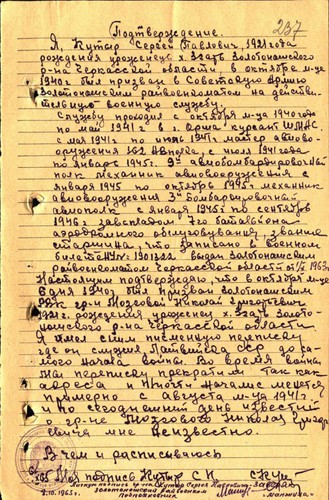 237
Подтверждение.
Я, Кушар Сергей Павлович, 1921 года
рождения уроженец х. Згарь Золотоношского
р-на Черкасской области, в октябре м-це
1940г. был призван в Советскую Армию
Золотоношским райвоенкоматом на действи-
тельную военную службу.
Службу проходил с октября м-ца 1940 года
по май 1941 г. в г. Орша курсант ШМАС,
с мая 1941г. по июль 1941г. мастер авиаво-
оружения с июля 1941 года
по январь 1945г. 9й авиобомбардировочный
полк механник авиовооружения с
января 1945 по октябрь 1945г. механник
авиовооружения 3й бомбардировочный
авиополк с января 1945г. по сентябрь
1946г. батальона
аэродромного обслуговування, звание
старшина, что записано в военном
билете выдан Золотоношским
райвоенкоматом Черкасской области 1963г.
Настоящим подтверждаю, что в октябре м-це
1940г. был призван Золотоношским
РВК гр-н Мозговой Николай Григорьевич
1921г. рождения уроженец х. Згарь Золото-
ношского р-на Черкасской области
Я имел с ним письменную переписку
где он служил Латвийская ССР до са-
мого начала войны. Во время войны
мы переписку прекратили так как
адреса и почты начались меняться
примерно с августа м-ца 1941г.
и по сегодняшний день известий
о гр-не Мозгового Николая Григор-
евича мне неизвестно.
В чем и расписываюсь
Моя подпись Кушар С П
Личную подпись гр-на Кушар Сергея Павловича заверяю
Золотоношский райвоенком
подполковник
9.10.1965г.